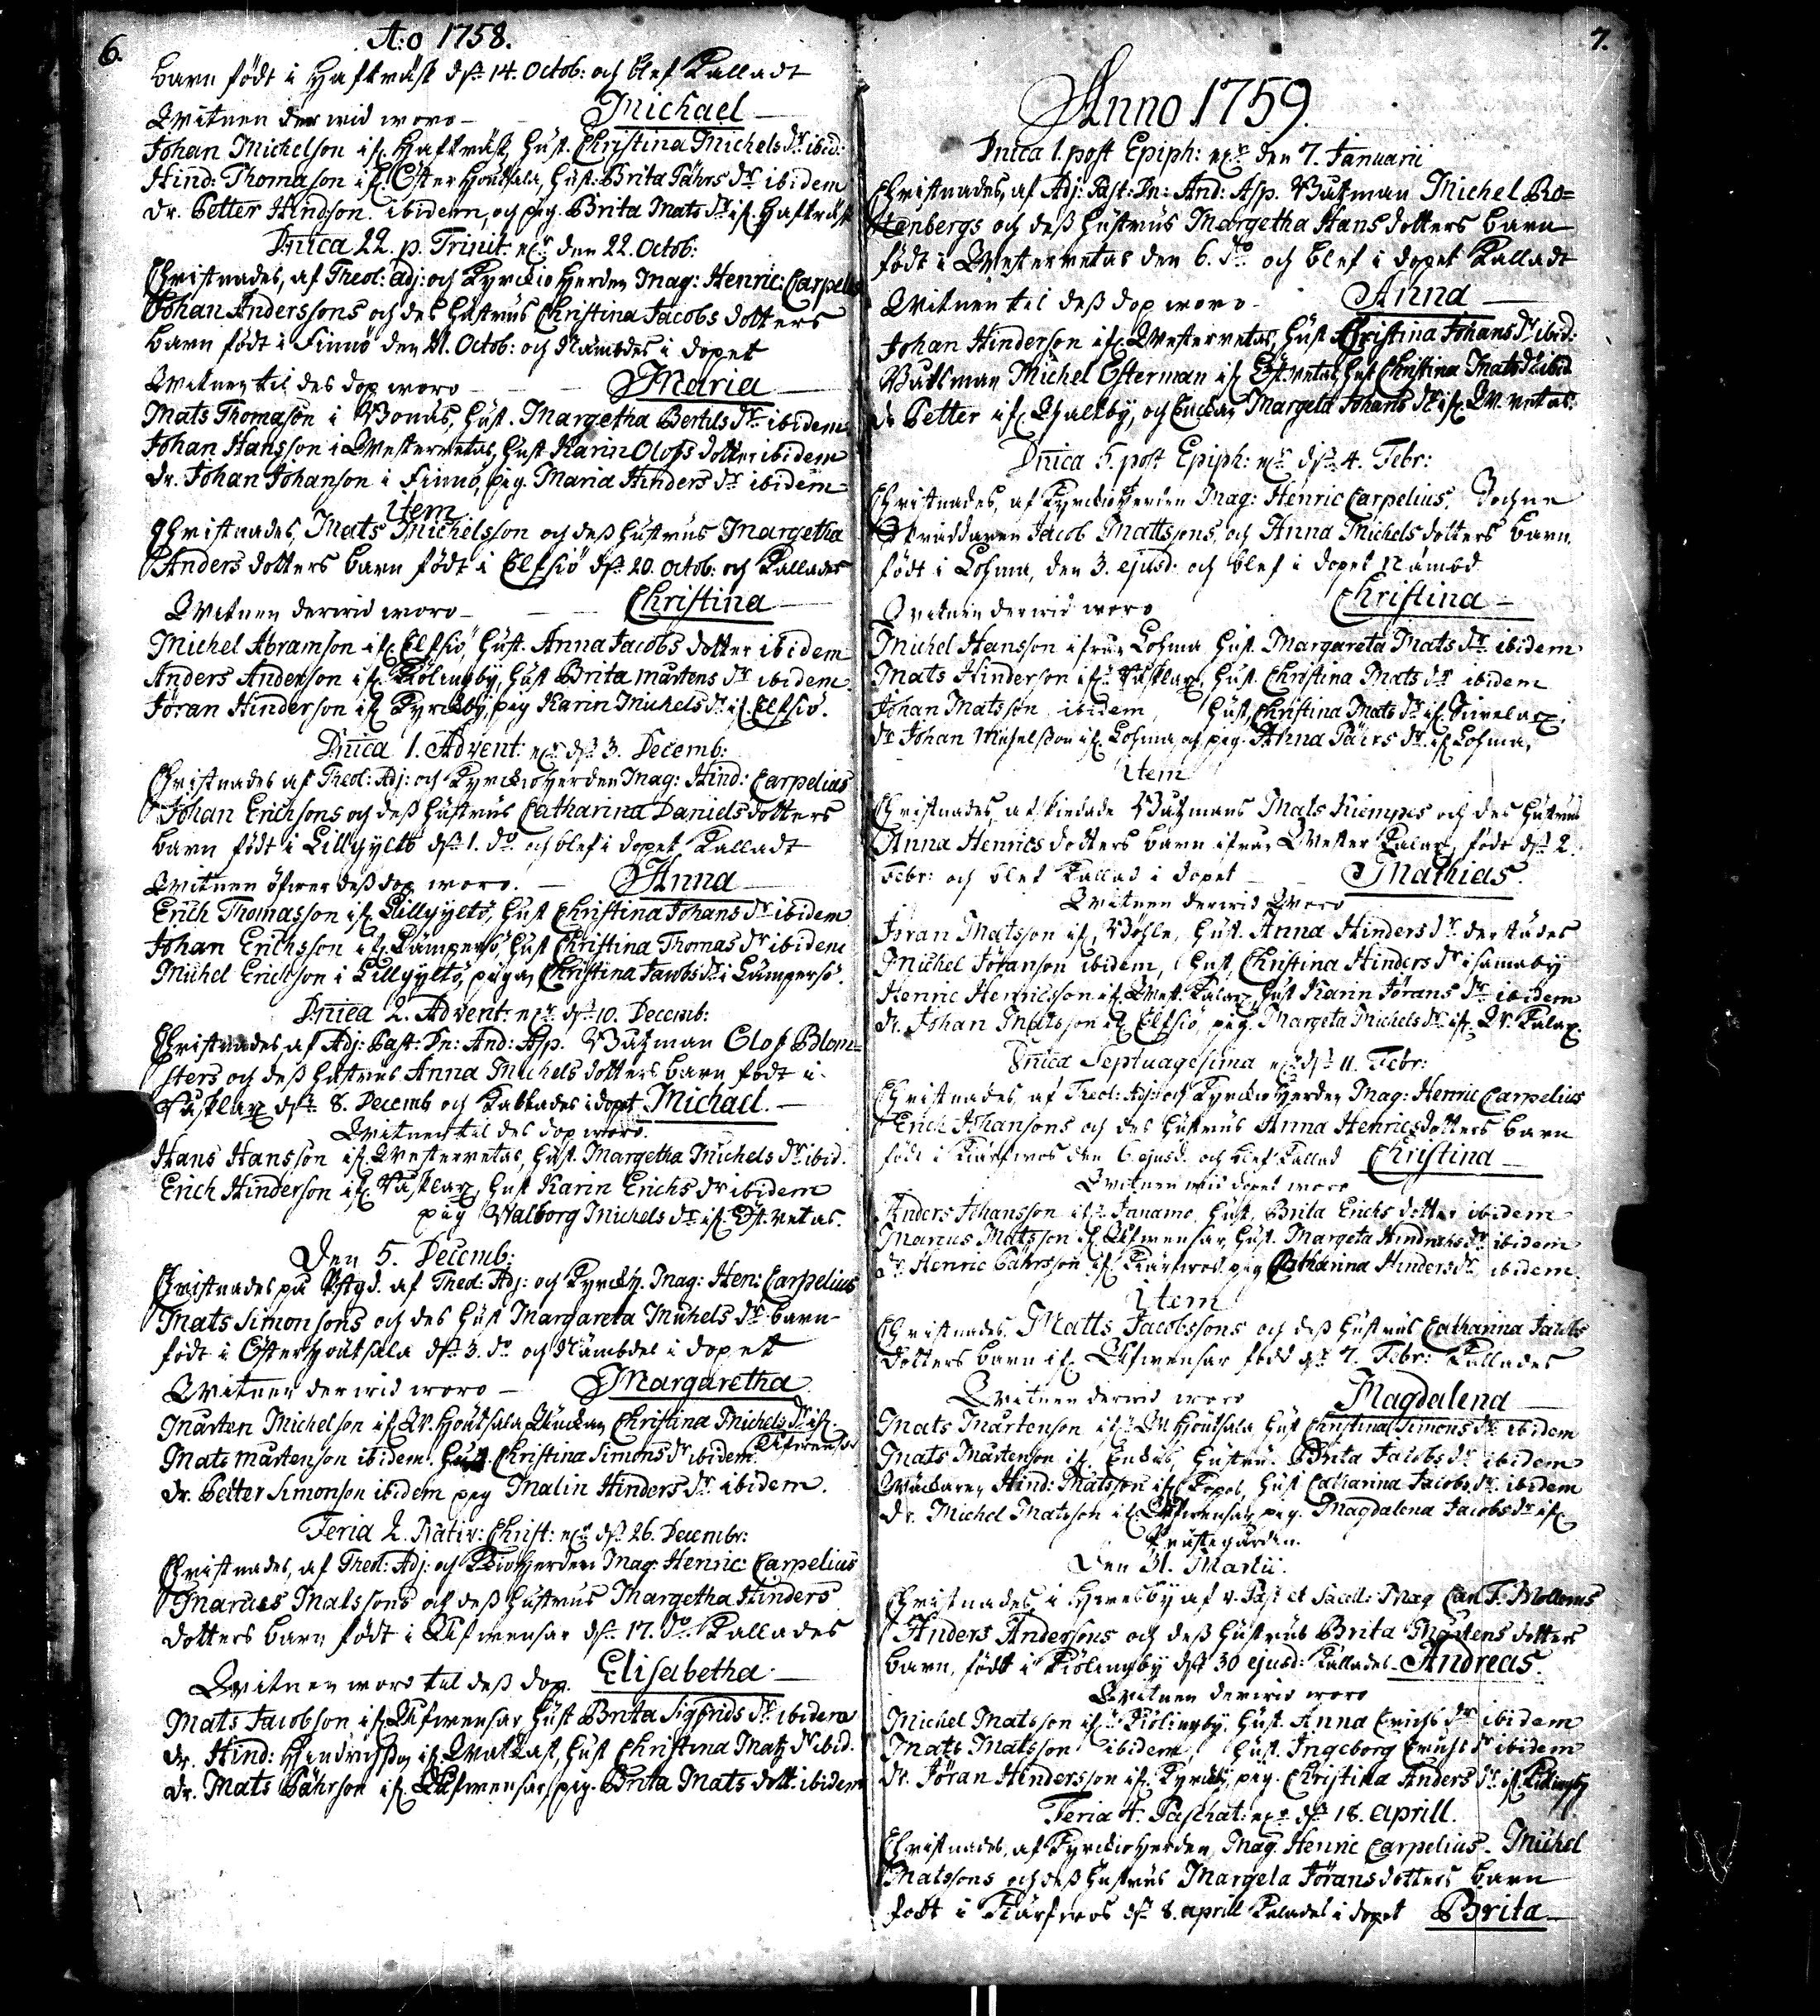 6.
A:o 1758.
barn födt i Hafträsk d. 14. Octob: och blef Kalladt
Witnen der wid woro — Michael
Johan Michelson if. Hafträsk, Hust. Christina Michels dr. ibid:
Hind: Thomason if. Öster Houtsala, Hust: Brita Påhrs dr. ibidem
dr. Petter Hindson. ibidem, och pig. Brita Mats dr. if. Hafträsk
Dnica 22. p. Trinit: den 22. Octob:
Christnades, af Theol: adj: och Kyrckio Herden Mag: Henric: Carpelius
Johan Anderssons och des Hustrus Christina Jacobs dotters
barn födt i Finnö den 21. Octob: och Nämbdes i dopet
Witnen til des dop woro — Maria
Mats Thomason i Bonäs, Hust. Margetha Bertils dr. ibidem
Johan Hansson i Westerretas, Hust Karin Olofs dotter ibidem
dr. Johan Johanson i Finnö, pig. Maria Hinders dr. ibidem
item
Christnades, Mats Michelsson och dess Hustrus Margetha
Anders dotters barn födt i Elfsiö d. 20. Octob: och Kallades
Witnen derwid woro — Christina
Michel Abramson if. Elfsiö, Hust. Anna Jacobs dotter ibidem
Anders Anderson if. Kiölingby, Hust Brita Mårtens dr. ibidem.
Jöran Hinderson if. Kyrckby, pig Karin Michels dr. if. Elfsiö.
Dnica 1. Advent: d. 3. Decemb:
Christnades af Theol: Adj: och Kyrckio Herden Mag: Hind: Carpelius
Johan Erichsons och dess Hustrus Catharina Daniels dotters
barn födt i Lillgyltö d. 1. do och blef i dopet Kalladt
Witnen öfwer dess dop woro. — Anna
Erich Thomasson if. Lillgyltö, Hust Christina Johans dr. ibidem
Johan Erichsson if. Lämpersö Hust Christina Thomas dr ibidem
Michel Erickson i Lillgyltö, pigan Christina Jacobs dr. i Lämpersö.
Dnica 2. Advent: d. 10. Decemb:
Christnades af Adj: Past: Dn: And: Asp. Båtzman Olof Blom-
sters och dess Hustrus Anna Michels dotters barn födt i
Wasklax d. 8. Decemb och Kallades i dopet Michael. —
Witnen til des dop woro.
Hans Hansson if. Westerretas, Hust. Margetha Michels dr. ibid.
Erich Hinderson if. Wasklax, Hust Karin Erichs dr ibidem
pig Walborg Michels dr. if. Öst. retas.
Den 5. Decemb:
Christnades på Pstgd. af Theol: Adj: och Kyrckh. Mag: Hen: Carpelius
Mats Simonsons och des Hust Margareta Michels dr. barn
födt i Öster Houtsala d. 3. do och Nämbdes i dopet
Witnen der wid woro — Margaretha
Mårten Michelson if. W. Houtsala Änckan Christina Michels dr. if.
Åfwensor
Mats Mårtenson ibidem. Hust. Christina Simons dr. ibidem.
dr. Petter Simonson ibidem pig Malin Hinders dr. ibidem.
Feria 2. Nativ: Christ: d. 26. Decembr:
Christnades, af Theol: Adj: och Kkioherden Mag: Henric: Carpelius
Marcus Matssons och dess Hustrus Margetha Hinders
dotters barn födt i Åfwensar d. 17. do. Kallades
Witnen woro til dess dop. Elisabetha —
Mats Jacobson if. Åfwensar Hust Brita Sigfrids dr. ibidem
dr. Hind: Hindrichsson if. Walkas, Hust Christina Matz dr ibid.
dr. Mats Påhrson if. Åfwensar, pig. Brita Mats dott. ibidem
7.
Anno 1759.
Dnica 1. post Epiph: den 7. Januarii
Christnades, af Adj: Past: Dn: And: Asp. Båtzman Michel Bo=
tenbergs och dess Hustrus Margetha Hans dotters barn
födt i Westerretas den 6. do och blef i dopet Kalladt
Witnen til dess dop woro — Anna —
Johan Hinderson if. Westerretas, Hust Christina Johans dr ibid:
Båtsman Michel Österman if. Öst. retas, Hust Christina Mats dr ibid
dr Petter if. Galtby, och Enckan Margeta Johans dr if. W. retas:
Dnica 5. post Epiph: d. 4. Febr:
Christnades, af Kyrckio Herden Mag: Henric Carpelius, Sochne
Skräddaren Jacob Mattssons, och Anna Michels dotters barn.
födt i Lohma, den 3. ejusd: och blef i dopet Nämbd
Witnen derwid woro Christina —
Michel Hansson ifrån Lohma Hust. Margareta Mats dr. ibidem
Mats Hinderson if. Wasklax, Hust. Christina Mats dr ibidem
Johan Matsson ibidem, Hust, Christina Mats dr. if.
dr Johan Michelsson if. Lohma, och pig. Anna Påers dr. if. Lohma,
item
Christnades, afskiedade Båtzmans Mats Kiempes och des Hustrus
Anna Henrics dotters barn ifrån Wester Kalax, född d. 2.
Febr: och blef Kallad i dopet — Mathias.
Witnen derwid Woro
Jöran Matsson if. Böhle, Hust. Anna Hinders dr. derstädes
Michel Jöranson ibidem, Hust, Christina Hinders dr i samaby
Henric Henricsson if. West. Kalax, Hust Karin Jörans dr. ibidem
dr. Johan Matsson if. Elfsiö, pig. Margeta Michels dr. if. W. Kalax.
Dnica Septuagesima d. 11. Febr:
Christnades, af Theol: Adj: och Kyrckio Herden Mag: Henric Carpelius
Erich Johansons och des Hustrus Anna Henrics dotters barn
födt i Kiärfwos den 6. ejusd. och blef Kallad Christina —
Witnen wid dopet woro
Anders Johansson if. Hust. Brita Erichs dotter ibidem
Marcus Matsson if. Åfwensar, Hust. Margeta Hindrichs dr. ibidem
dr. Henric Påhrsson if. Kiärfwos, pig Catharina Hinders dr ibidem.
item
Christnades, Matts Jacobssons och dess Hustrus Catharina Jacobs
dotters barn if. Åfwensar född d. 7. Febr: Kallades
Witnen derwid woro Magdalena
Mats Mårtenson if. W. Houtsala Hust Christina Simons dr. ibidem
Mats Mårtenson if. Hustru Brita Jacobs dr ibidem
Hind: Matsson if. Hust Catharina Jacobs dr. ibidem
dr. Michel Matsson if. Åfwensar, pig. Magdalena Jacobs dr if.
Prästegården.
Den 31. Martii.
Christnades i Hyresby af v. Past et Sacell: Mag Carl F.
Anders Andersons och dess Hustrus Brita Mårtens dotters
barn, födt i Kiölingby d. 30 ejusd: Kallades Andreas.
Witnen derwid woro
Michel Matsson if. Kiölingby, Hust. Anna Erichs dr ibidem
Mats Matsson ibidem, Hust. Ingeborg Erichs dr ibidem
dr. Jöran Hindersson if. Kyrckby, pig. Christina Anders dr. if. Kiölingby
Feria 4. Paschat: d. 18. aprill.
Christnades, af Kyrckio Herden, Mag. Henric Carpelius Michel
Matssons och dess Hustrus Margeta Jörans dotters barn
födt i Kiärfwos d. 8. aprill Kalades i dopet Brita —